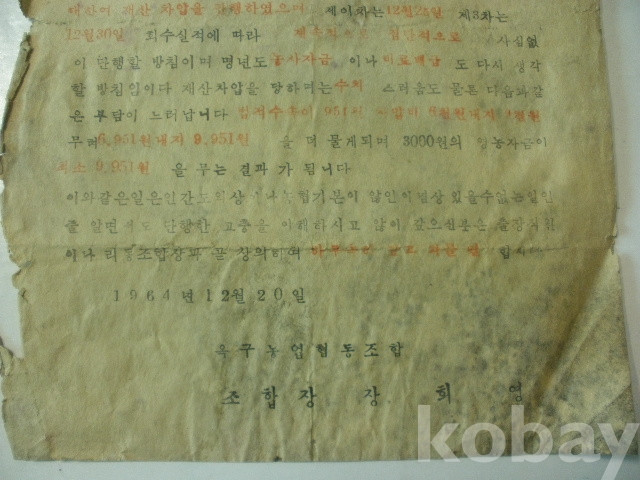 대상여 재산 차압을 단행하였으며 제이차는 12월25일 제3차는
12월30일 회수실적에 따라 계속적으로 집단적으로 사심없
이 단행할 방침이며 명년도 농사자금 이나 비료배남 도 다시 생각
할 방침입이다 재산차압을 당하며는 수치 스러움도 물론 다음과갈
은 부담이 느러납니다 951원
무려 6.951원내지 9.951원 을 더 물게되며 3000원의 영농자금이
9.951원 을 무는 결과 가 됩니다
이와같은일은인간도의상 이나농협기본이 않인이별상있을수없는일인
줄 알면서도 단행한 고충을 이해하시고 않이 갚으신분은 출장직원
이나 리동조합장과 곧 상의하여 합시다
1964년12월20일
옥구농업협동조합
조합장 장 희 영
kobay